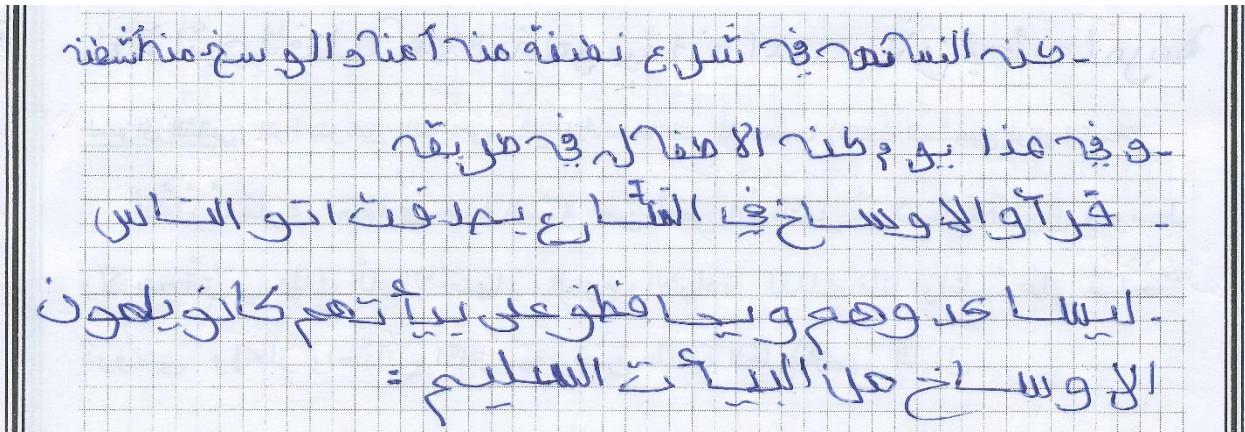 -كنه النسا تمه في شرع نضيفة منه أمنا والوسخ منه أشطنه
-وفي هذا يوم كنه الاطفال في طريقه
- قرأو الاوساخ في الشارع بصدفت اتو الناس
-ليساعدوهم ويحافظو على بيأتهم كانو يلمون
الاوساخ من البيأت السليم :